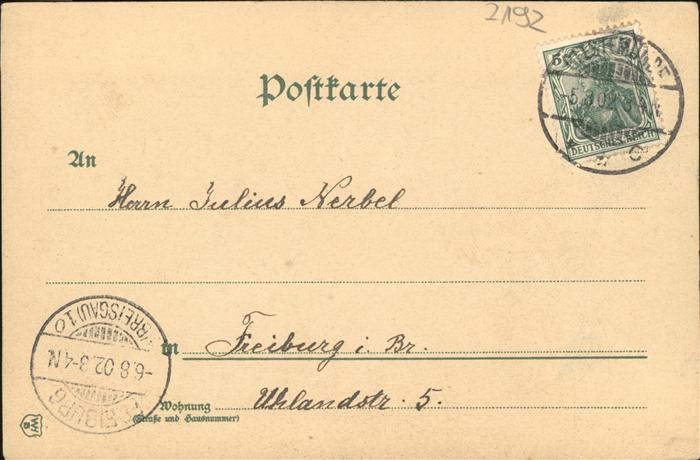 2192
5
5.8.02.3-4
DEUTSCHES REICH
Postkarte
An
Herrn Julius Nerbel
in Freiburg i. Br.
Wohnung Uhlandstr. 5.
(Straße und Hausnummer)
FREIBURG
-6.8.02.3-4N.
(BREISGAU) 1 o